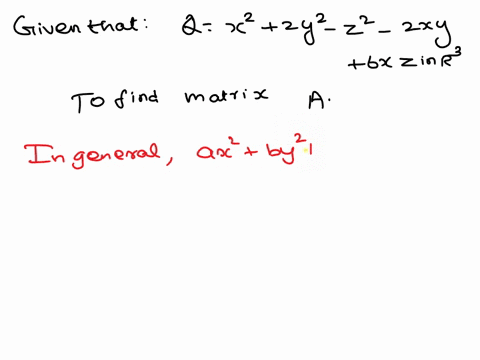 Given that: Q = x² + 2y² - z² - 2xy
+ 6x z in R³
To find matrix A.
In general, ax² + by² 1